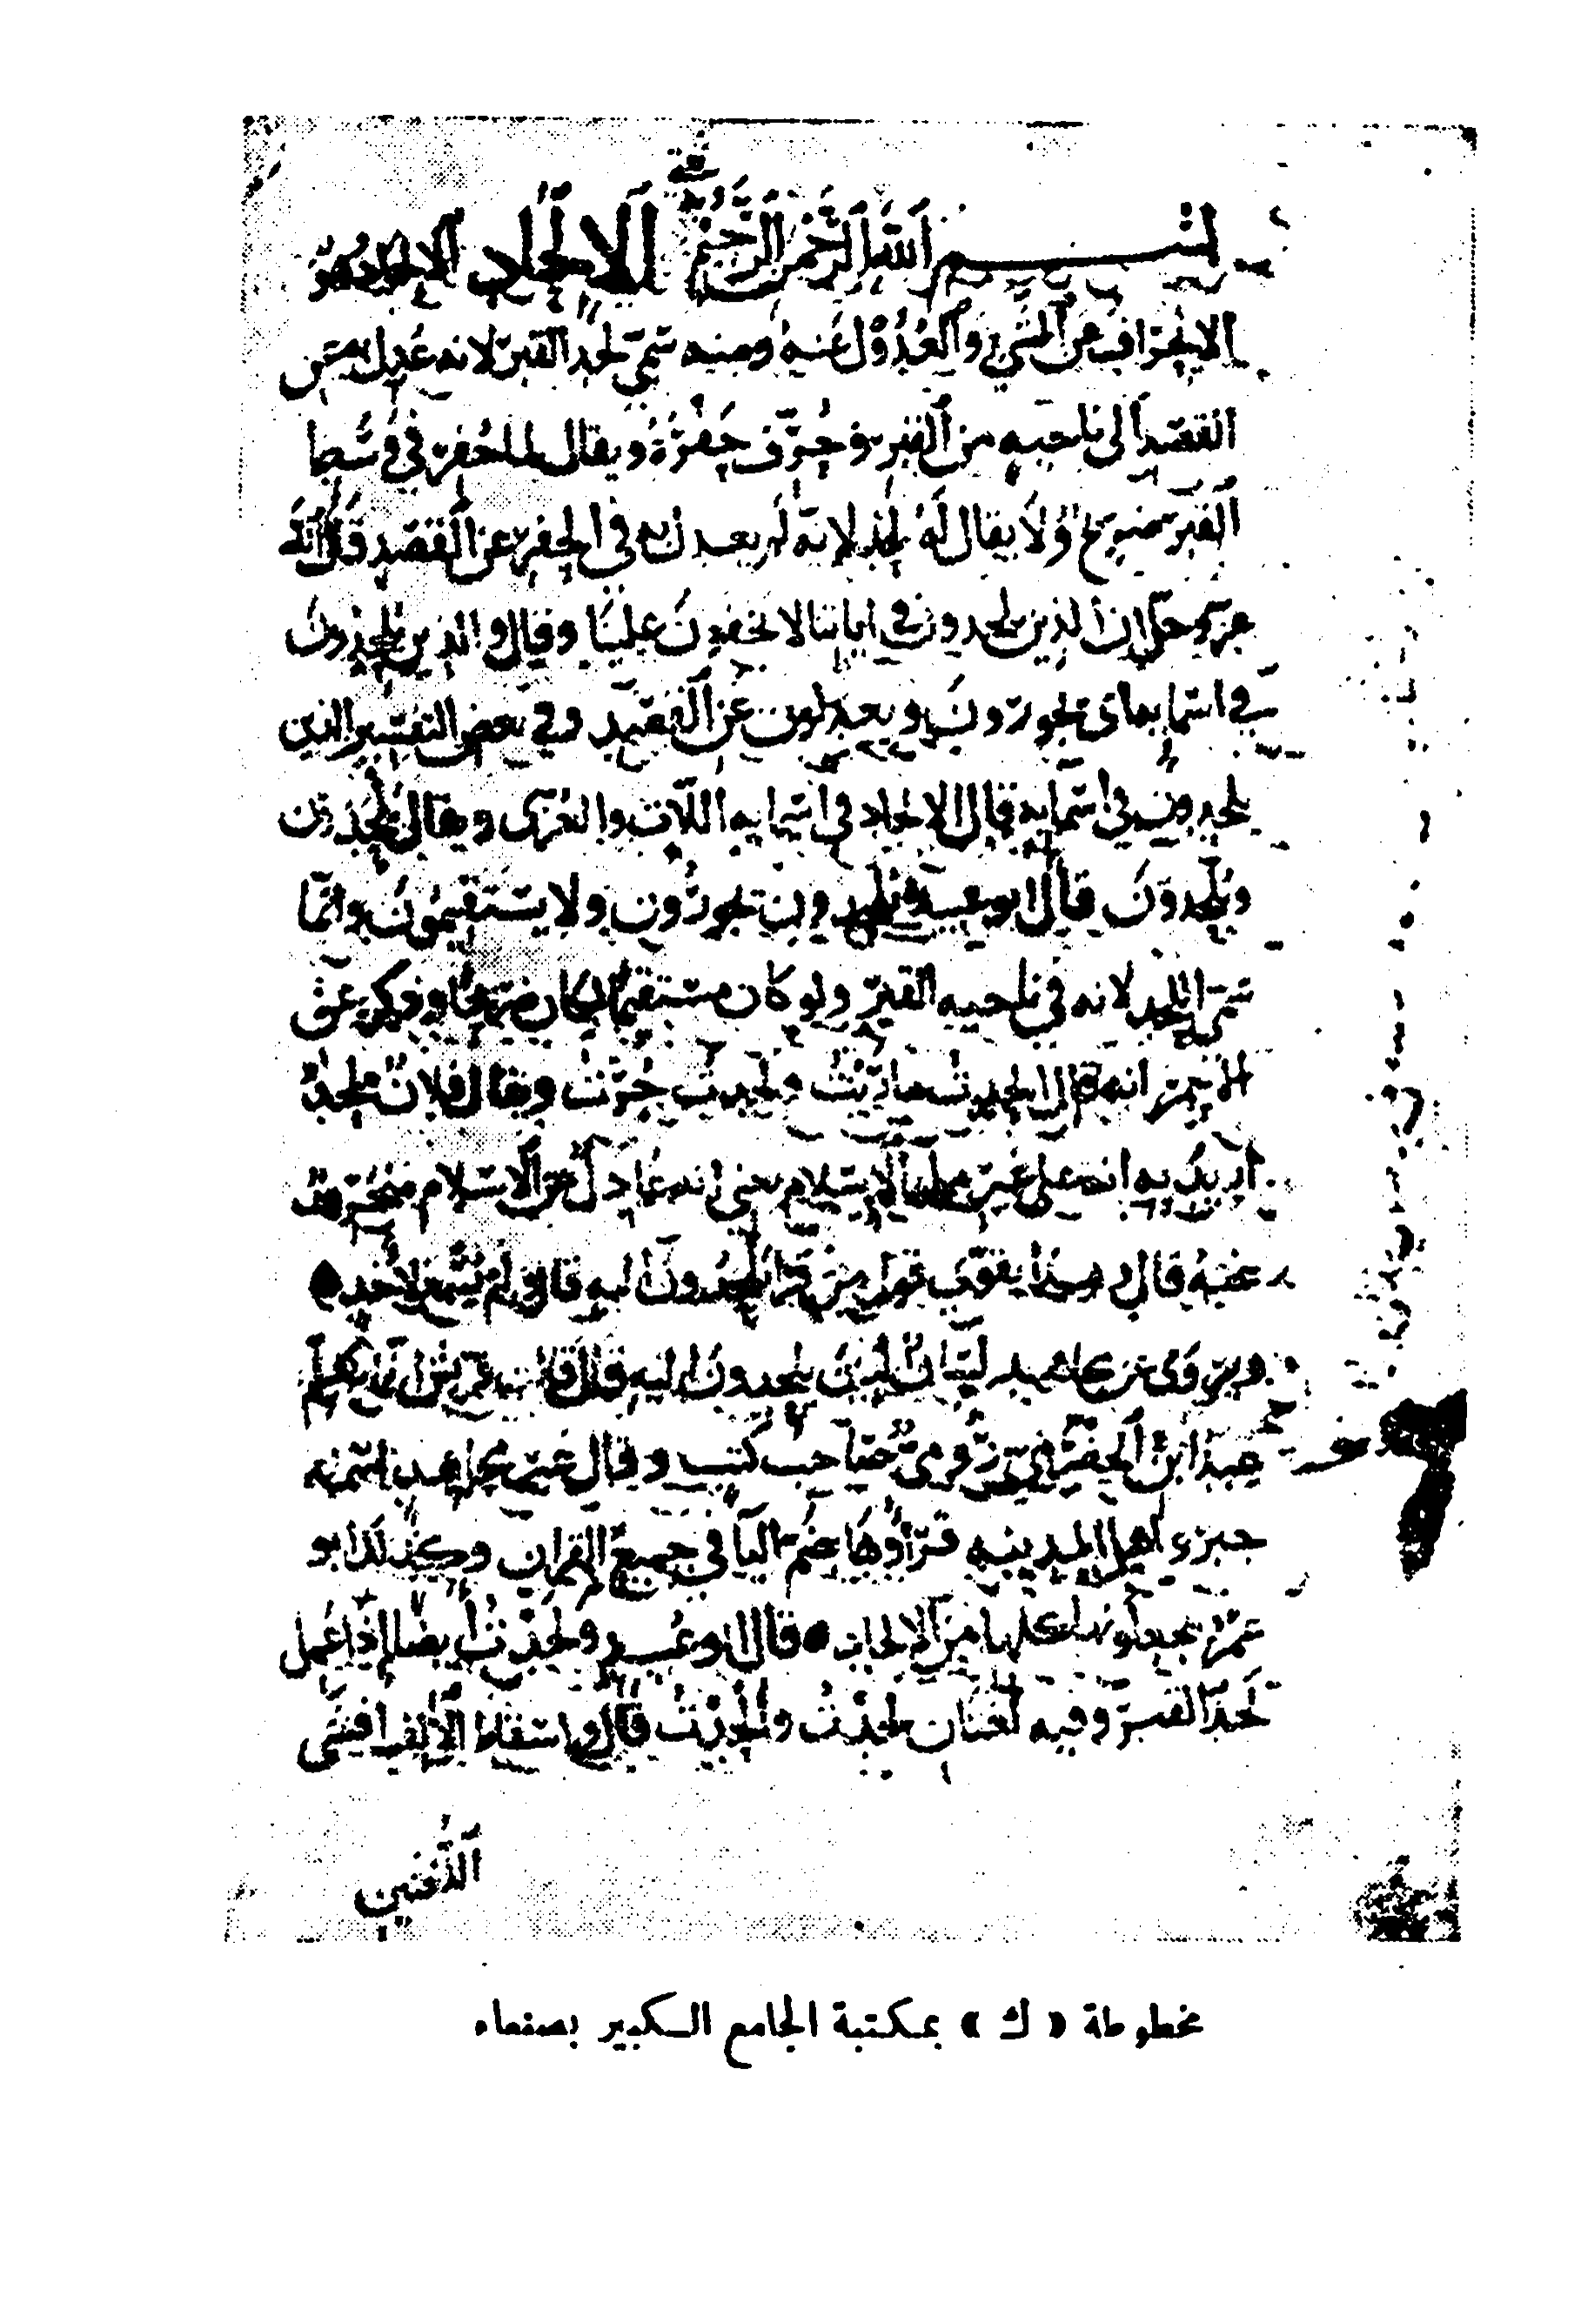 بسم الله الرحمن الرحيم الالحاد الالحاد هو
الانحراف عن الشيء والعُدُوْل عَنه ومنه سمّي لحد القبر لانه عُدِل به عن
القصد الى ناحيه من القبر وحُرِّف حفرَةُ ويقال لما حُفِر في وَسَط
القبر ضريح ولا يقال له لحد لانه لم يعدل به في الحفر عن القصد قال الله
عز وجل ان الذين يلحدون في اياتنا لا يخفون علينا وقال والذين يلحدون
في اسمايه اى يجورون ويعدلون عن القصد وفي بعض التفسير الذين
يلحدون في اسمايه قال الالحاد في اسمايه اللات والعزى ويقال يُلحِدون
ويَلحدون قال ابو عبيده يلحدون يجورون ولا يستقيمون وانما
سمي اللحد لانه في ناحيه القبر ولو كان مستقيما لكان ضريحا وذكر عن
الاحمر انه قال الحدت ماريت ولحدت جُرت ويقال فلان ملحد
اريد به انه على غير الاسلام يعني انه عادل عن الاسلام منحرف
عنه قال وهذا يقوي قول من قرا يُلحدون اليه قال ولم يُسمع لاحد
ويروى عن مجاهد لسان الذين يلحدون اليه قال قالت قريش انما يعلم
عبد ابن الحضرمي رومي صاحب كتب وقال غير مجاهد اسمه
جبر اهل المدينه قراوها بضم اليا في جميع القران وكذلك ابو
عمرو يجعلونها كلها من الالحاد قال ابو عبيد ولحدت ايضا اذا عمل
لَحدَ القبر وفيه لُغتان لحدت والحدت قال واستقلنا الالف افشى
اللغتين
مخطوطة « ك » بمكتبة الجامع الكبير بصنعاء